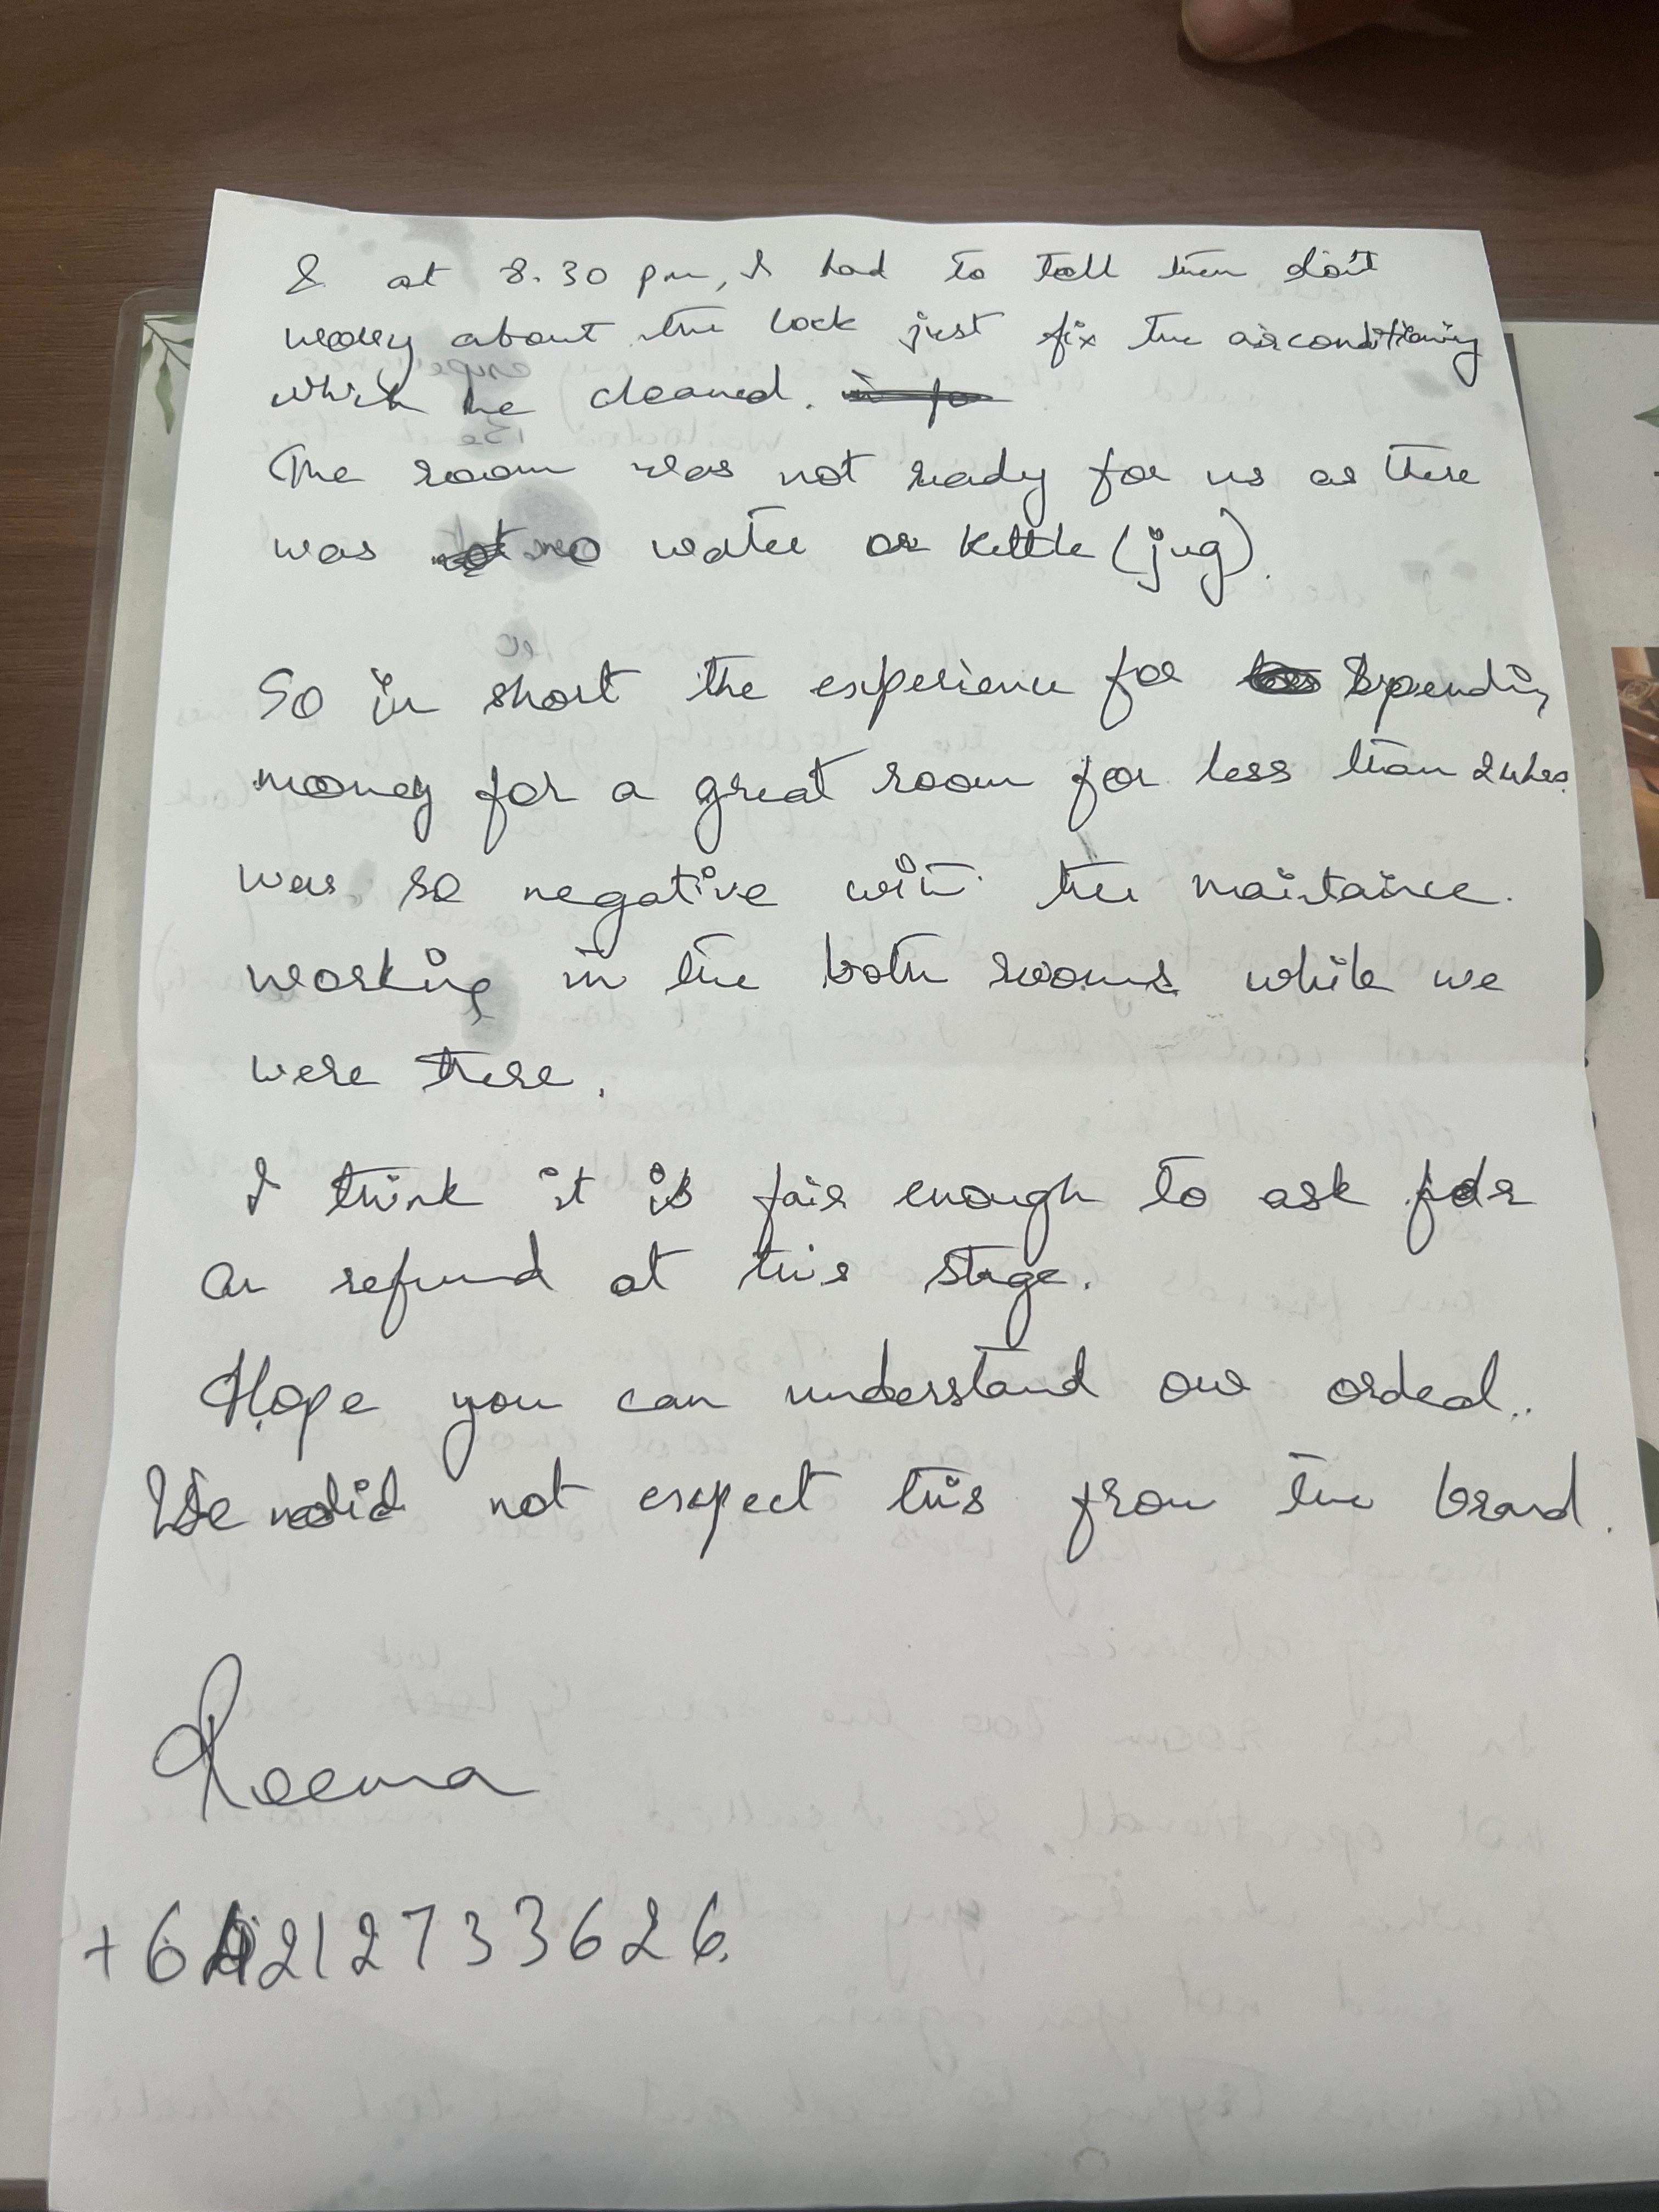 & at 8.30 pm, I had to tell them don't
worry about the lock just fix the airconditioning
which he cleaned.
The room was not ready for us as there
was no water or kettle (jug).
So in short the experience for spending
money for a great room for less than 24hrs.
was so negative with the maintaince.
working in the both rooms while we
were there.
I think it is fair enough to ask for
a refund at this stage.
Hope you can understand our ordeal..
We did not expect this from the brand.
Reema
+64212733626